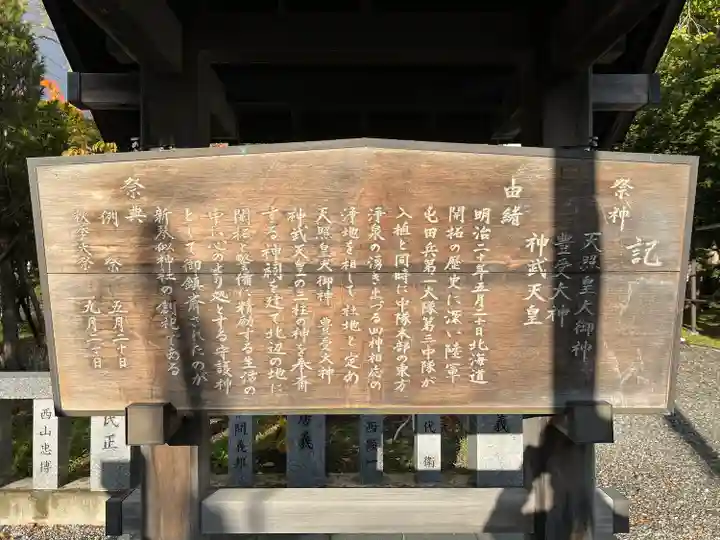 記
祭神
天照皇大御神
豊受大神
神武天皇
由緒
明治二十年五月二十日北海道
開拓の歴史に深い陸軍
屯田兵第一大隊第三中隊が
入植と同時に中隊本部の東方
浄泉の湧き出づる四神相応の
浄地を相して社地と定め
天照皇大御神 豊受大神
神武天皇の三柱の神を奉斎
する神祠を建て北辺の地に
開拓と警備に精励する生活の
中に心のより処とする守護神
として御鎮斎されたのが
新琴似神社の創祀である
祭典
例祭 五月二十日
秋季大祭 九月二十日
西山忠博
民正
間義邦
房義
西陵一
代衛
義